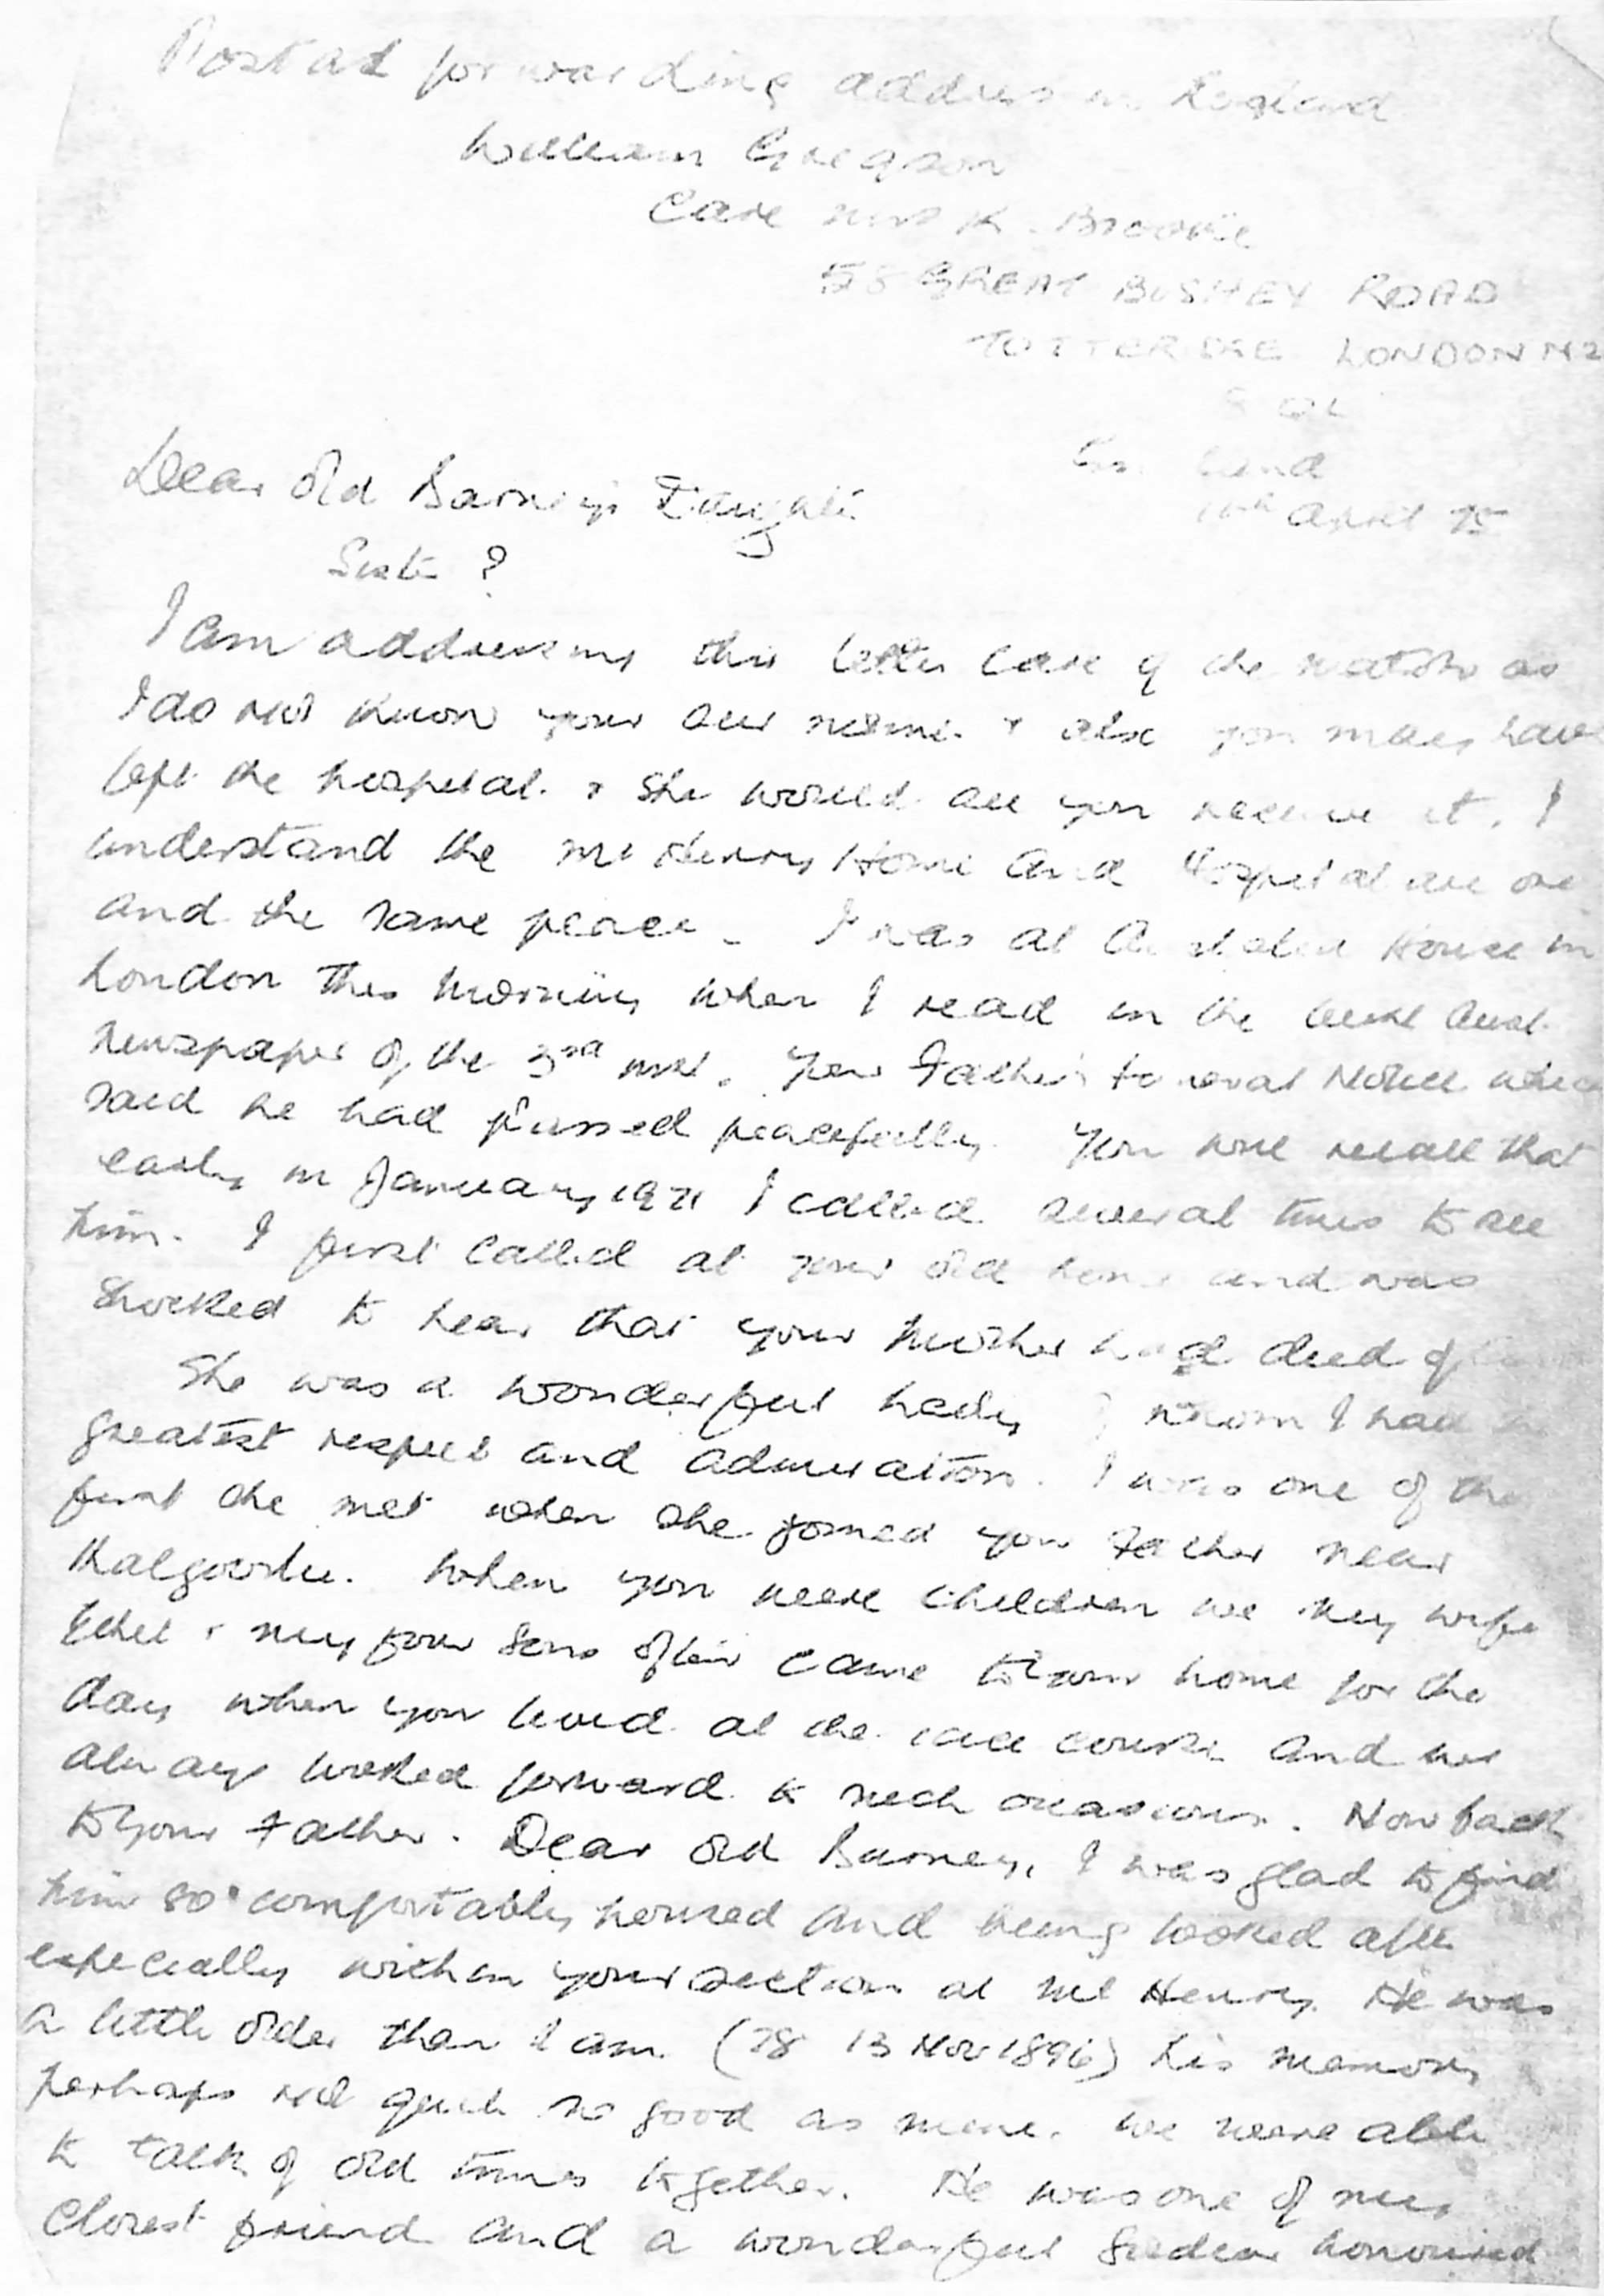 Postal forwarding address in England
William Gregson
Care Mrs K. Brooke
58 GREAT BUSHEY ROAD
TOTTERIDGE LONDON N2
8 QL
England
April 75
Dear Old Barney's Daughter
Sister ?
I am addressing this letter care of the Matron as
I do not know your surname & also you may have
left the hospital & she would see you receive it. I
understand the Mt Henry Home and Hospital are one
and the same place. I was at Australia House in
London this morning when I read in the West Aust.
Newspaper of the 3rd inst. Your Father's funeral notice which
said he had passed peacefully. You will recall that
early in January 1971 I called several times to see
him. I first called at your old home and was
shocked to hear that your Mother had died
She was a wonderful Lady whom I had
greatest respect and admiration. I was one of the
first she met when she joined your Father near
Kalgoorlie. When you were children we my wife
Ethel & my four sons often came to your home for the
day when you lived at the race course and we
always looked forward to such occasions. Now back
to your Father. Dear Old Barney, I was glad to find
him so comfortably housed and being looked after
especially within your section at Mt Henry. He was
a little older than I am (78 13 Nov 1896) his memory
perhaps not quite so good as mine. We were able
to talk of old times together. He was one of my
Closest friend and a wonderful honoured